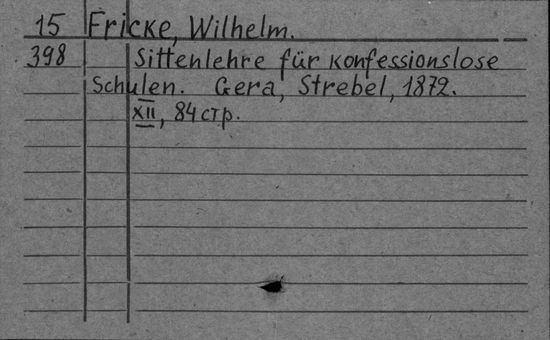 15 Fricke, Wilhelm.
398 Sittenlehre für konfessionslose
Schulen. Gera, Strebel, 1872.
XII, 84 стр.